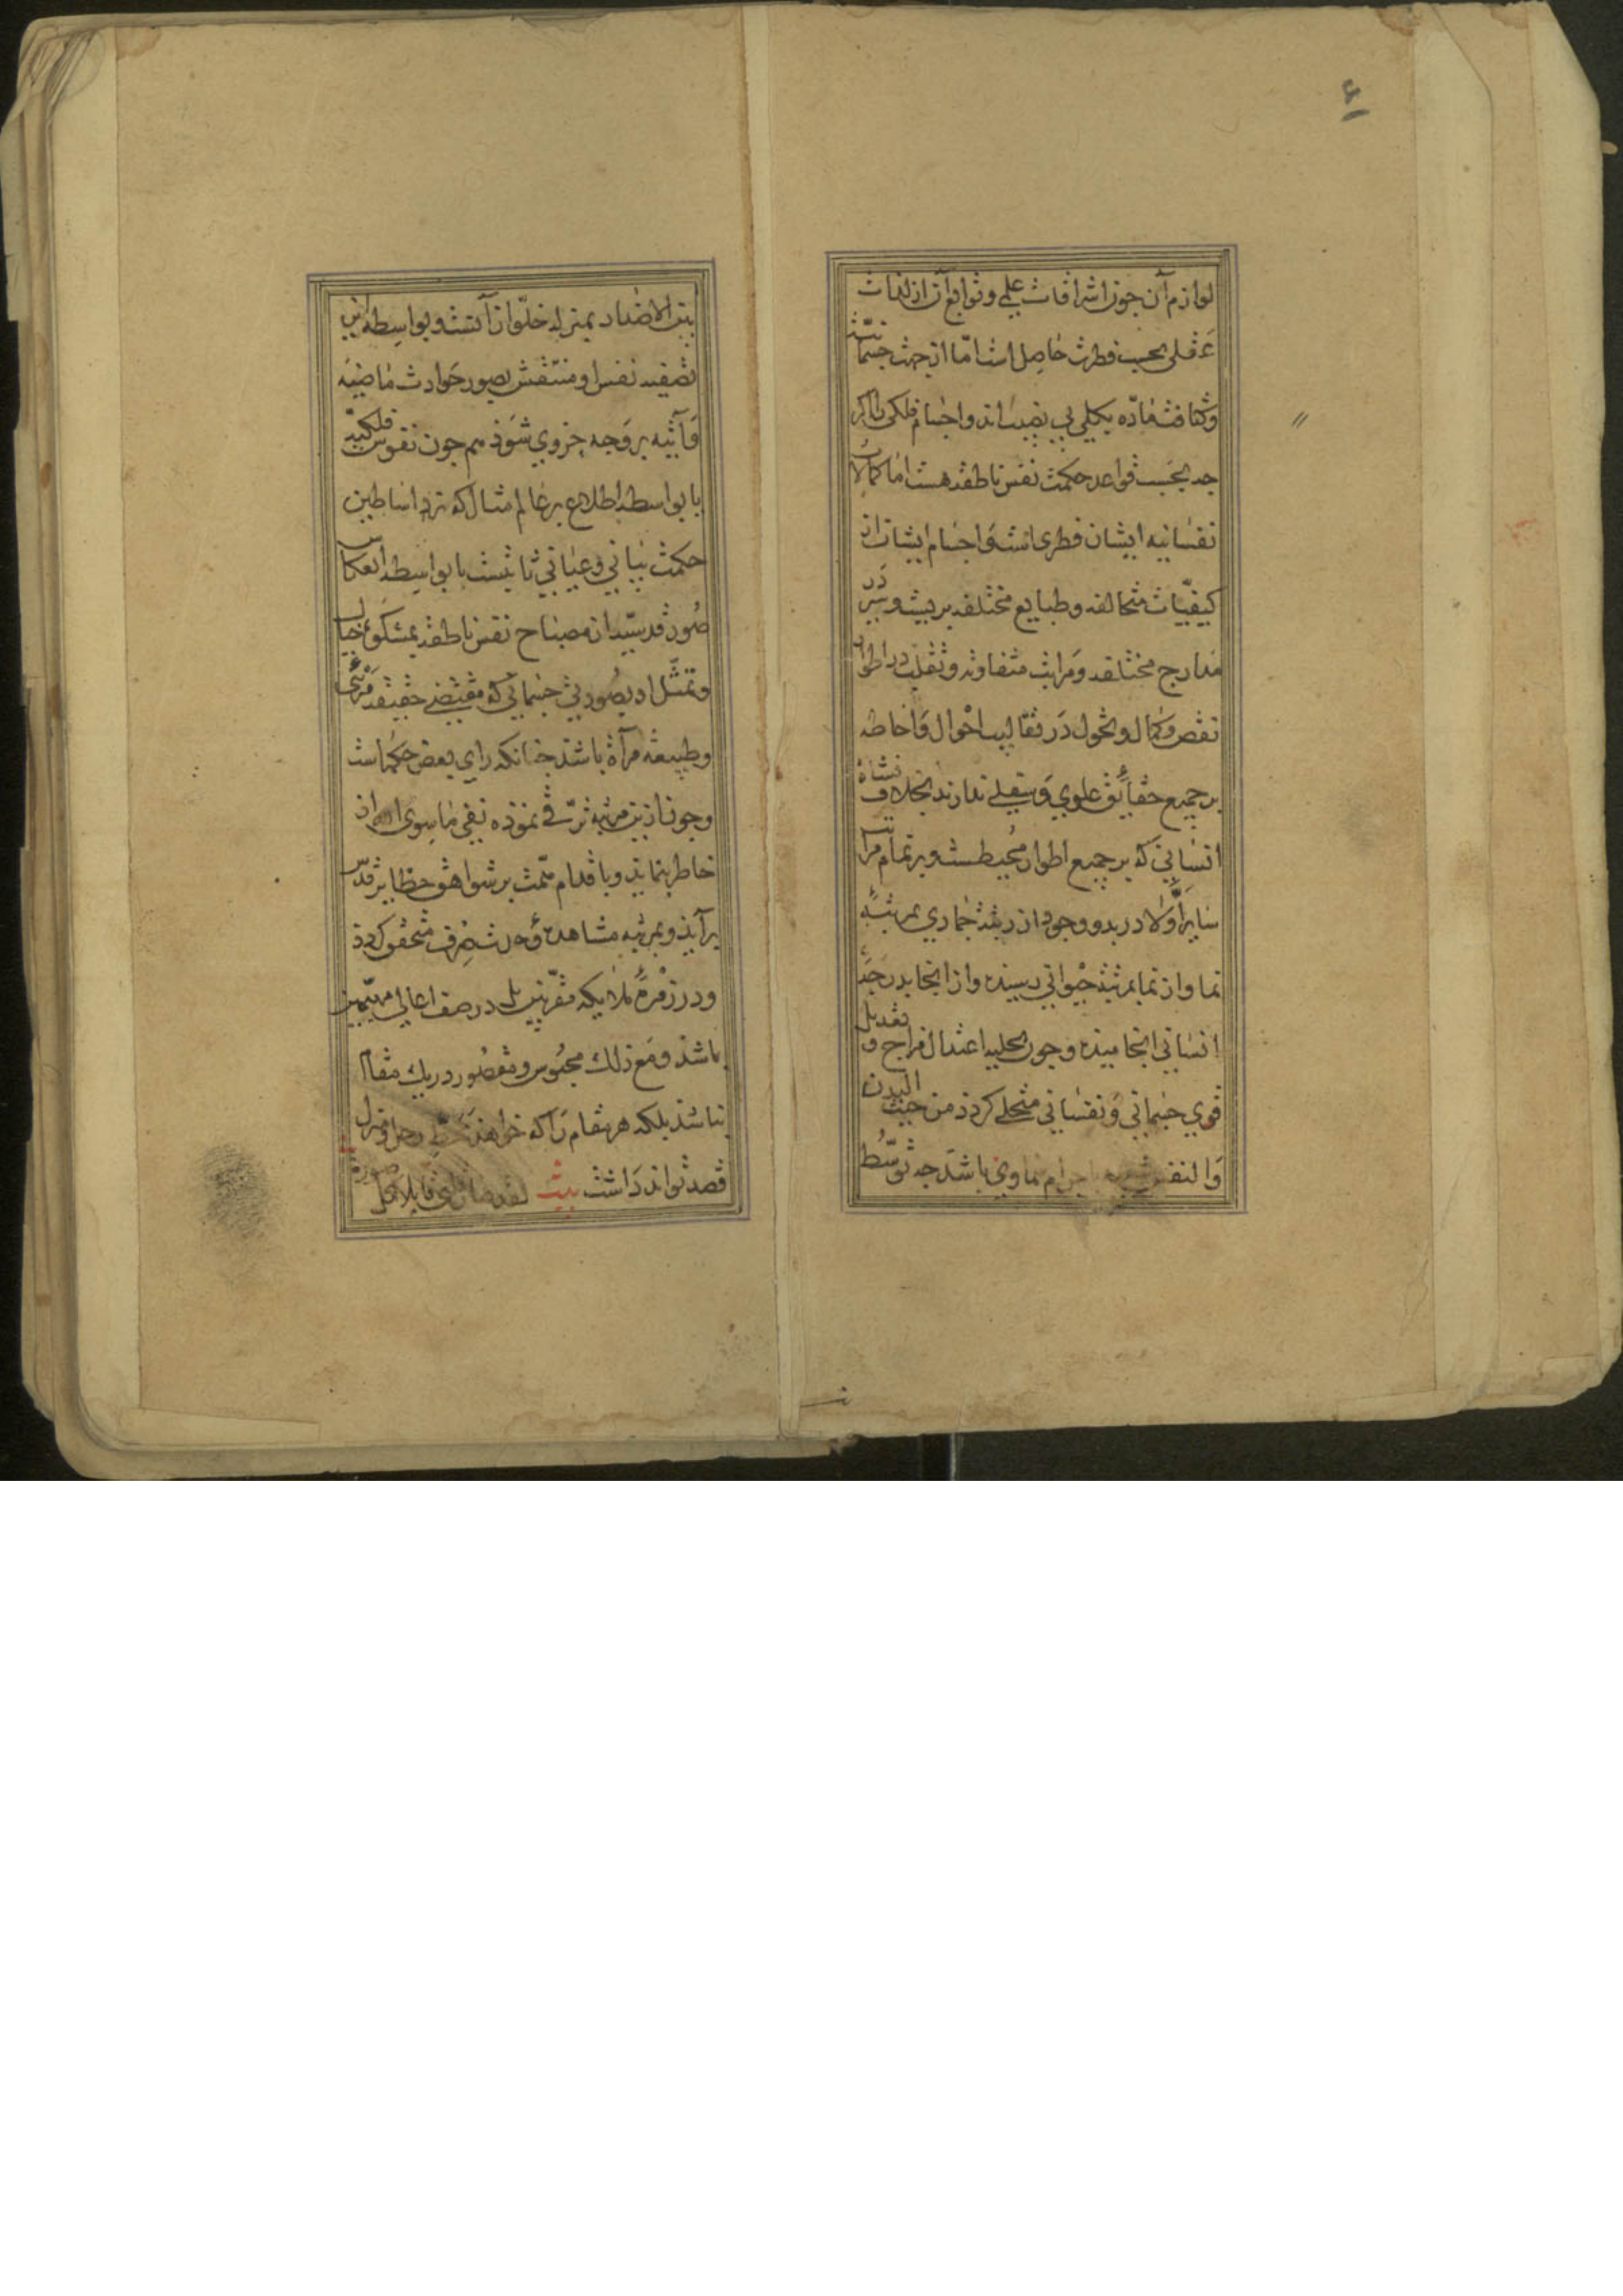 لوازم آن چون اشراقات علمی و توابع آن از لذات
عقلی بحسب فطرت حاصل است اما از جهت جسمانیت
و کثافت ماده بکلی بی نصیب اند و اجسام فلکی را اگر
چه بحسب قواعد حکمت نفس ناطقه هست اما کمالات
نفسانیه ایشان فطری است و اجسام ایشان از
کیفیات متخالفه و طبایع مختلفه بری است و سیر در
مدارج مختلفه و مراتب متفاوته و تقلب در اطوار
نقص و کمال و تحول در تقالیب احوال و احاطه
بر جمیع حقایق علوی و سفلی ندارند بخلاف نشاة
انسانی که بر جمیع اطوار محیطست و بر تمام مراتب
سایر اولا در بدو وجود از رتبت جمادی بمرتبه
نما و از نما بمرتبه حیوانی رسیده و از انجا بدرجه
انسانی انجامیده و چون بحلیه اعتدال مزاج و تعدیل
قوی جسمانی و نفسانی متحلی کردد من حیث البدن
و النفس شبیه باجرام سماوی باشد چه توسط
بین الاضداد بمنزله خلو از آنست و بواسطه این
تصفیه نفس او منتقش بصور حوادث ماضیه
و آتیه بر وجه جزوی شود هم چون نفوس فلکیه
یا بواسطه اطلاع بر عالم مثال که نزد اساطین
حکمت بیانی و عیانی ثابتست یا بواسطه انعکاس
صور قدسیه از مصباح نفس ناطقه بمشکوة خیال
و تمثل او بصورتی جسمانی که مقتضی حقیقه مرئی
و طبیعة مرآة باشد چنانکه رای بعض حکماست
و چون ازین مرتبه ترقی نموذه نفی ماسوی الله از
خاطر بنماید و باقدام همت بر شواهق حظایر قدس
برآید و بمرتبه مشاهده وحدت صرف متحقق کردد
و در زمره ملایکه مقربین بل در صف اعالی مهیمین
باشد و مع ذلک محبوس و مقصور در یک مقام
نباشد بلکه هر مقام را که خواهد محل و منزل
قصد تواند داشت بیت لقد صار قلبی قابلا کل صورة